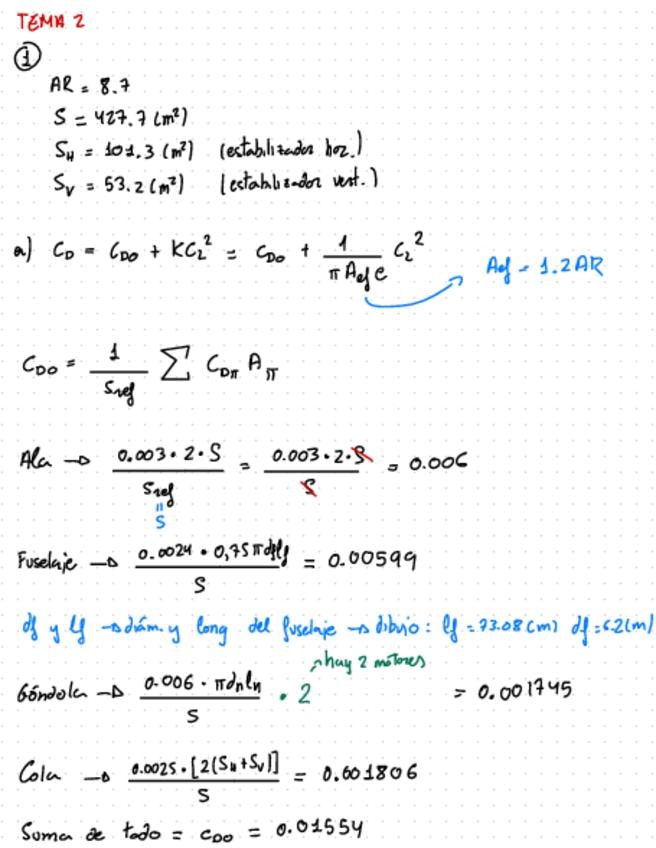 TEMA 2
①
AR = 8.7
S = 427.7 (m²)
S_H = 101.3 (m²) (estabilizador hoz.)
S_V = 53.2 (m²) (estabilizador vert.)
a) C_D = C_D0 + KC_L² = C_D0 + 1/(π A_ef e) C_L²
A_ef = 1.2AR
C_D0 = 1/S_ref ∑ C_Dπ A_π
Ala → (0.003 · 2 · S)/S_ref = (0.003 · 2 · S)/S = 0.006
" S
Fuselaje → (0.0024 · 0,75 π d_f l_f)/S = 0.00599
df y lf → diám. y long del fuselaje → dibujo : lf = 73.08 (m) df = 6.2 (m)
hay 2 motores
Góndola → (0.006 · π d_n l_n)/S · 2 = 0.001745
Cola → (0.0025 · [2(S_H + S_V)])/S = 0.001806
Suma de todo = C_D0 = 0.01554